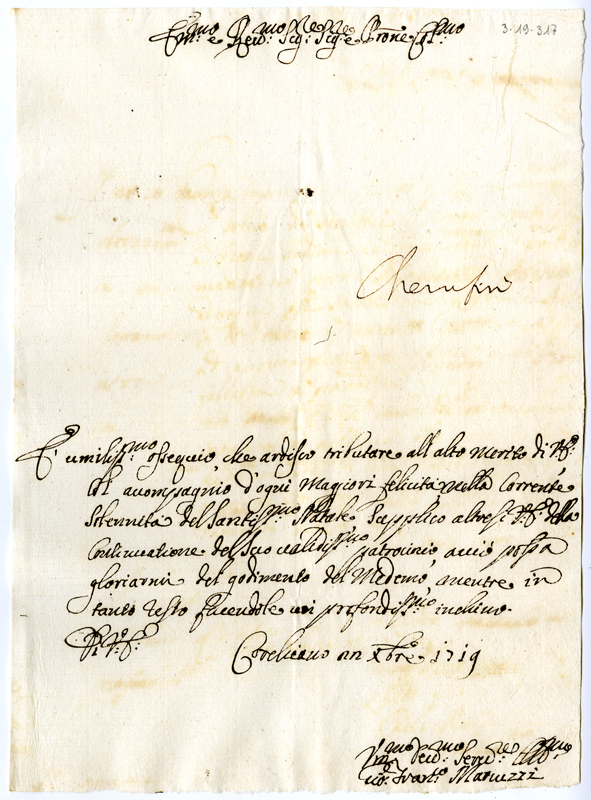 3-19-317
Em.mo e Rev.mo Sig.re Sig.re e Prone Col.mo
Cherufini
L'umiliss.mo ossequio, che ardisco tributare all'alto merito di V.E.
l'accompagnio d'ogni Maggiori felicità nella Corrente
Solennità del Santiss.mo Natale. Supplico altresì V.E. della
Continuatione del Suo validiss.mo patrocinio, acciò possa
gloriarmi del godimento del Medemo, mentre in
tanto resto facendole un profondiss.mo inchino.
Di V.E.
22 Xbre 1719
Um.mo Dev.mo Serv.re Obl.mo
Maruzzi